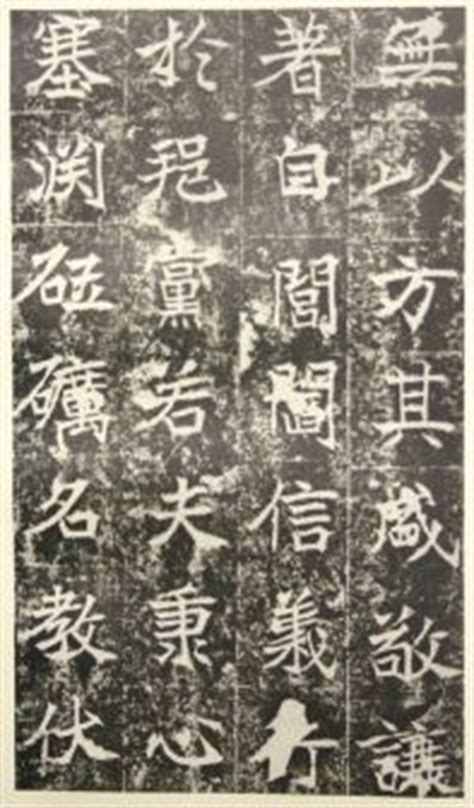 無以方其感敬讓
著自閭閻信義行
於鄉黨若夫秉心
塞渕砥礪名教伏